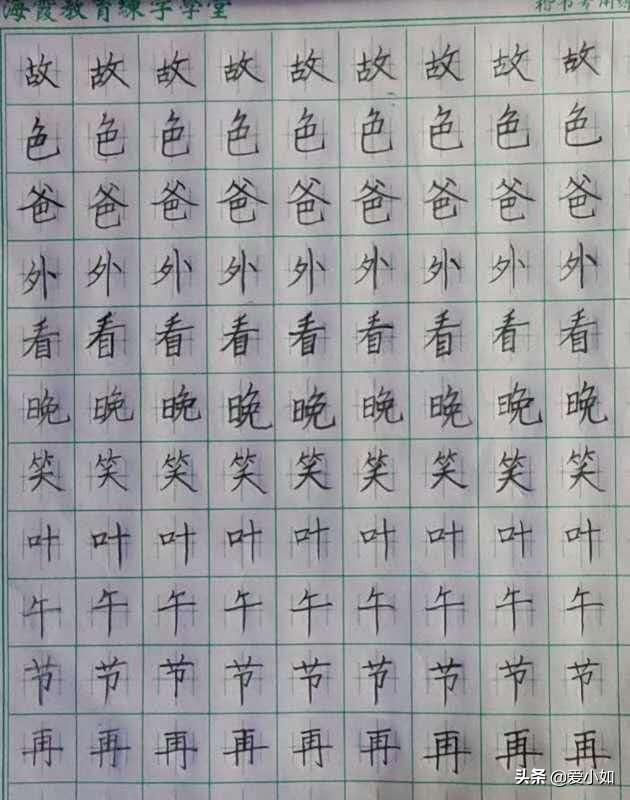 海霞教育练字学堂
故故故故故故故故故
色色色色色色色色色
爸爸爸爸爸爸爸爸爸
外外外外外外外外外
看看看看看看看看看
晚晚晚晚晚晚晚晚晚
笑笑笑笑笑笑笑笑笑
叶叶叶叶叶叶叶叶叶
午午午午午午午午午
节节节节节节节节节
再再再再再再再再再
头条 @爱小如